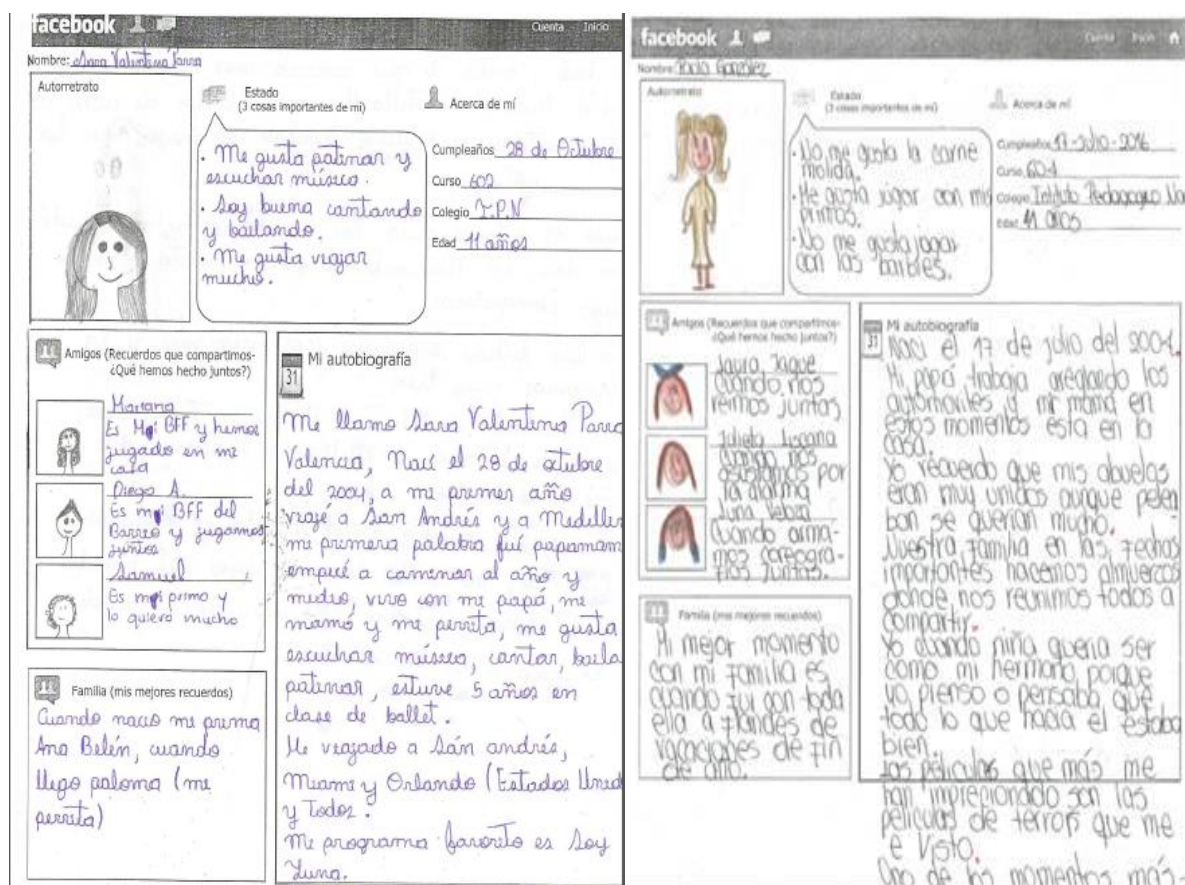 facebook
Cuenta Inicio
Nombre: Sara Valentina Parra
Autorretrato
Estado
(3 cosas importantes de mi)
· Me gusta patinar y
escuchar música.
· Soy buena cantando
y bailando.
· Me gusta viajar
mucho.
Acerca de mí
Cumpleaños 28 de Octubre
Curso 602
Colegio I.P.N
Edad 11 años
Amigos (Recuerdos que compartimos-
¿Qué hemos hecho juntos?)
Mariana
Es Mi BFF y hemos
jugado en mi
casa
Diego A.
Es mi BFF del
Barrio y jugamos
juntos
Samuel
Es mi primo y
lo quiero mucho
Familia (mis mejores recuerdos)
Cuando nacio mi prima
Ana Belén, cuando
llego paloma (mi
perrita)
Mi autobiografía
31
Me llamo Sara Valentina Parra
Valencia, Nací el 28 de octubre
del 2004, a mi primer año
viajé a San Andrés y a Medellin
mi primera palabra fué papamam
empecé a caminar al año y
medio, vivo con mi papá, mi
mamá y mi perrita, me gusta
escuchar música, cantar, baila
patinar, estuve 5 años en
clase de ballet.
He viajado a Sán andrés,
Miami y Orlando (Estados Unid
y Todos.
Mi programa favorito es Soy
Luna.
facebook
Cuenta Inicio
Nombre: Paola González
Autorretrato
Estado
(3 cosas importantes de mi)
· No me gusta la carne
molida.
· Me gusta jugar con mis
primos.
· No me gusta jugar
con las barbies.
Acerca de mí
Cumpleaños 17-Julio-2016
Curso 601
Colegio Instituto Pedagogico Na
Edad 11 años
Amigos (Recuerdos que compartimos-
¿Qué hemos hecho juntos?)
Laura
Cuando nos
reimos juntas
Julieta
Cuando nos
asustamos por
la alarma
Luna
Cuando arma-
mos coreogra-
fias juntas.
Familia (mis mejores recuerdos)
Mi mejor momento
con mi familia es
cuando fui con toda
ella a flandes de
vacaciones de fin
de año.
Mi autobiografía
31
Naci el 17 de julio del 2004.
Mi papá trabaja areglando los
automoviles y mi mamá en
estos momentos esta en la
casa.
Yo recuerdo que mis abuelos
eran muy unidos aunque pelea
ban se querian mucho.
Nuestra familia en las fechas
importantes hacemos almuerzos
donde nos reunimos todos a
compartir.
Yo cuando niña queria ser
como mi hermano porque
yo pienso o pensaba que
todo lo que hacia el estaba
bien.
Las peliculas que más me
han imprecionado son las
peliculas de terror que me
e visto.
Uno de los momentos más-